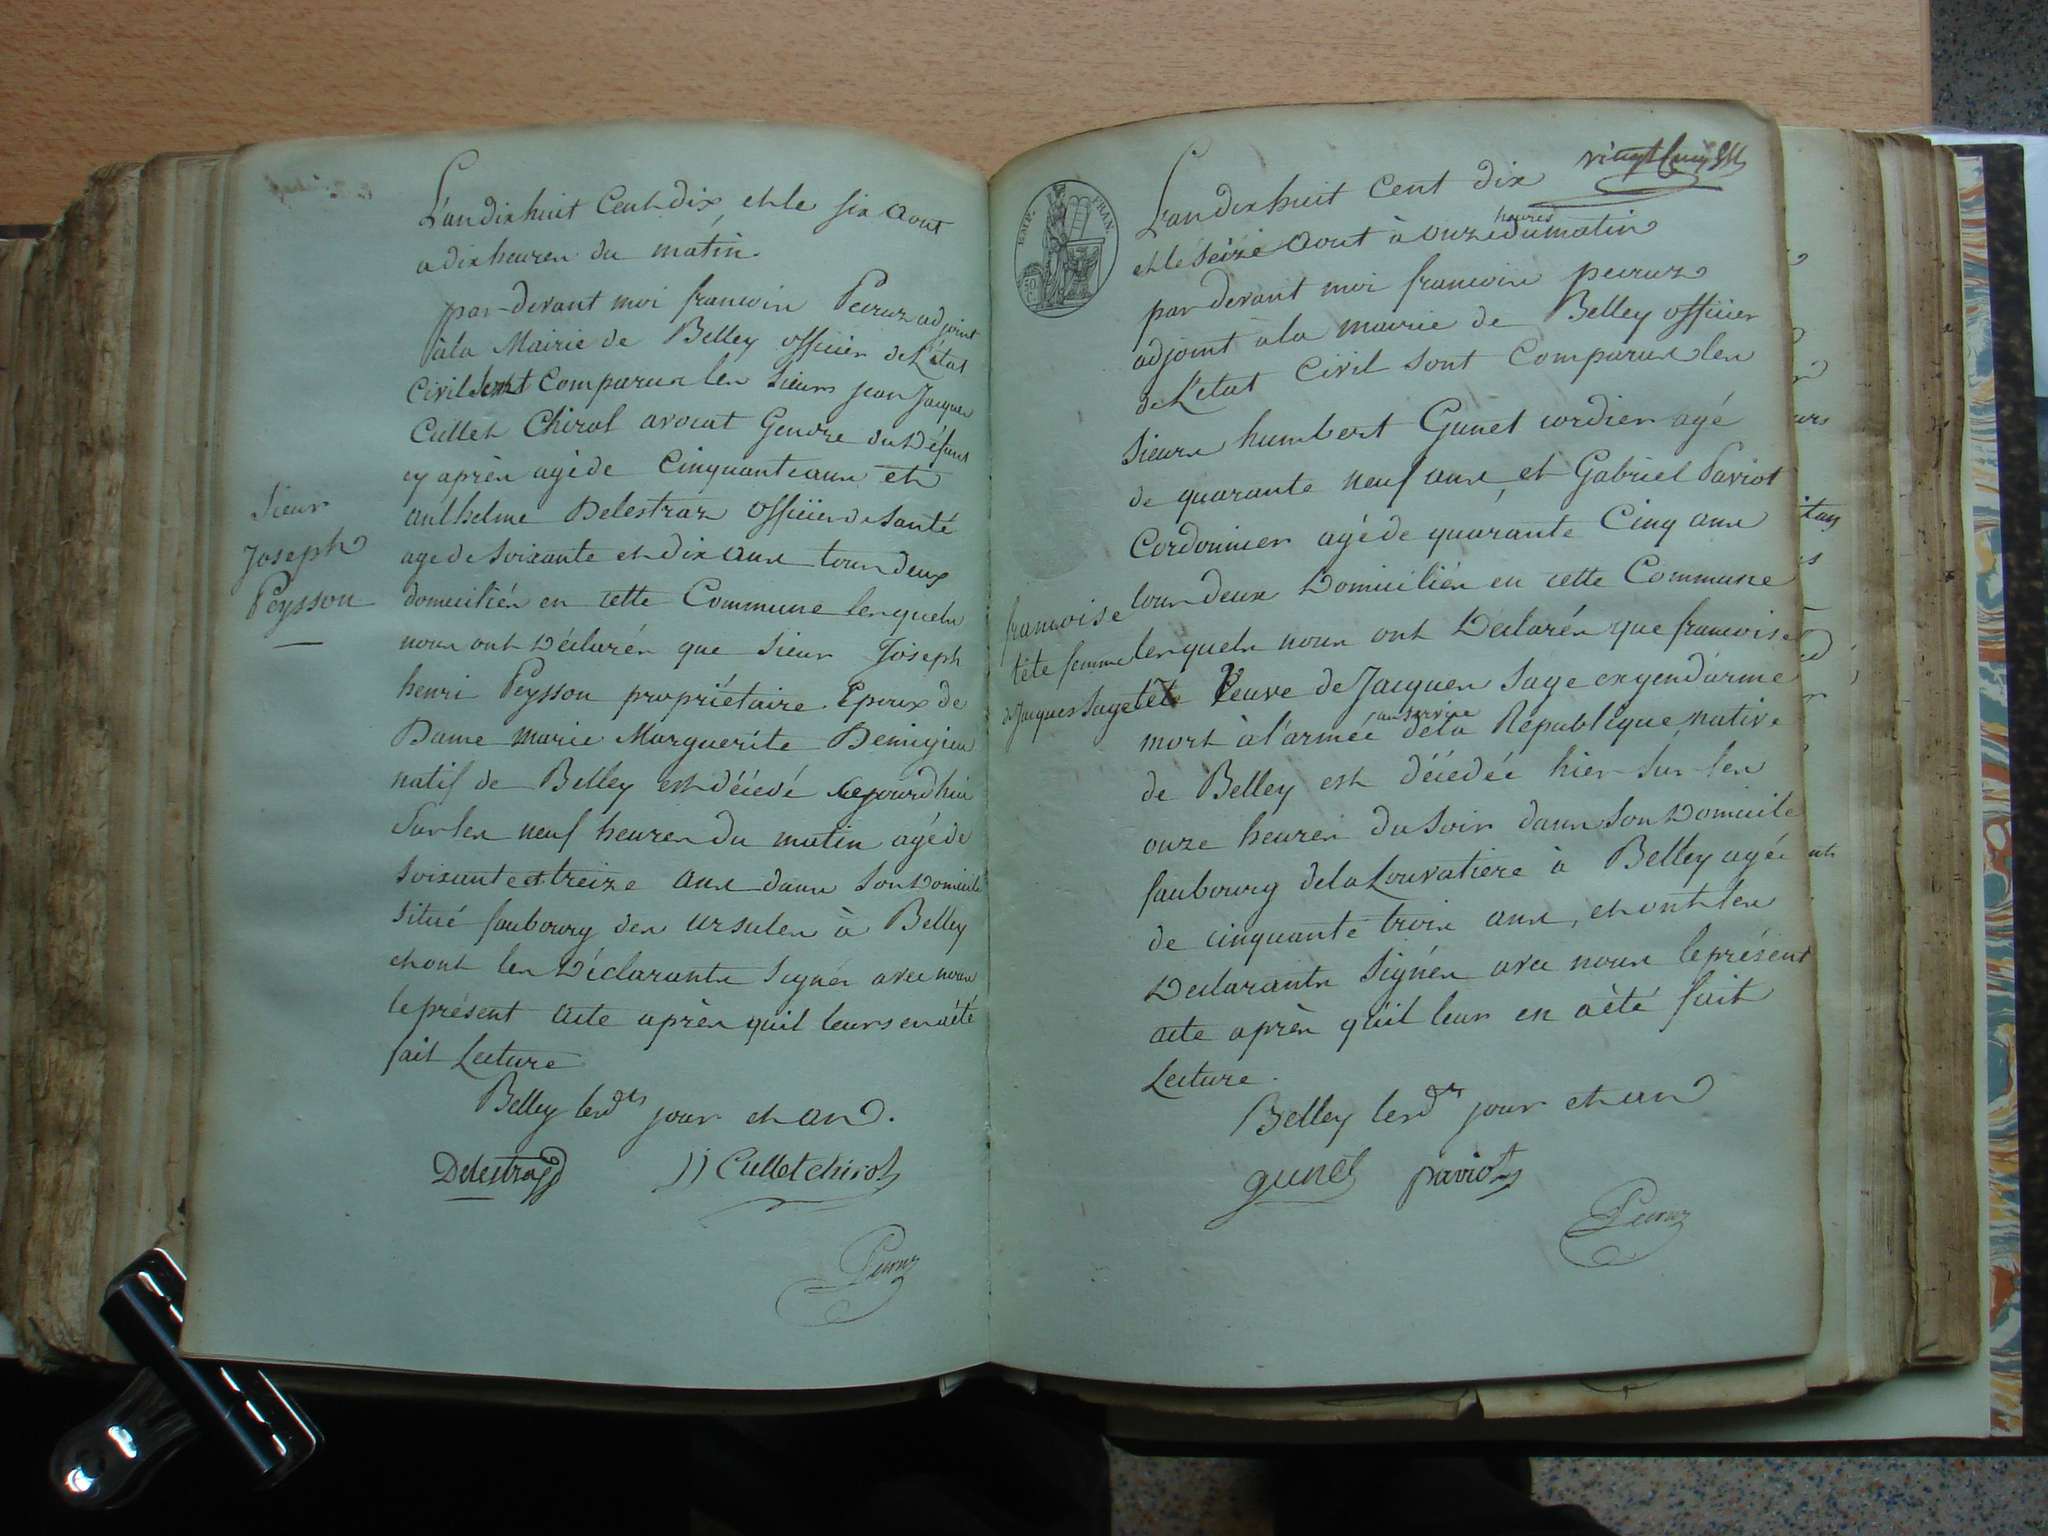 L'an dix huit Cent dix et le six Aout
a dix heures du matin.
par-devant moi francois Peeruz adjoint
à la Mairie de Belley officier de L'état
Civil sont comparus les Sieurs jean Jacques
Cullet Chirol avocat Gendre du Défunt
cy après agé de Cinquante ans et
anthelme Delestraz officier de santé
agé de soixante et dix ans tous deux
domiciliés en cette Commune lesquels
nous ont Déclarés que Sieur Joseph
henri Peysson propriétaire Epoux de
Dame marie Marguerite Demigieu
natif de Belley est décédé cejourdhui
Sur les neuf heures du matin agé de
soixante et treize ans dans son Domicile
situé faubourg des ursules à Belley
et ont les Déclarants signés avec nous
le présent acte après quil leurs en a été
fait Lecture
Belley les dts jour et an.
Delestraz JJ Cullet chirol
Peeruz
Sieur
Joseph
Peysson
vingt
EMP. FRAN.
L'an dix huit Cent dix
et le seize Aout à onze heures du matin
par devant moi francois peeruz
adjoint à la mairie de Belley officier
de L'état Civil sont Comparus les
Sieurs humbert Gunet cordier agé
de quarante neuf ans, et Gabriel Paviot
Cordonnier agé de quarante Cinq ans
tous deux Domiciliés en cette Commune
lesquels nous ont Declarés que francoise
tete Veuve de Jacques Sage ex gendarme
mort à l'armée au service de la République, native
de Belley est décédée hier sur les
onze heures du soir dans son Domicile
faubourg de la Louvatiere à Belley agée
de cinquante trois ans, et ont les
Declarants signés avec nous le présent
acte après quil leur en a été fait
Lecture.
Belley les dts jour et an
gunet paviot
Peeruz
francoise
tête femme
de Jacques Sage